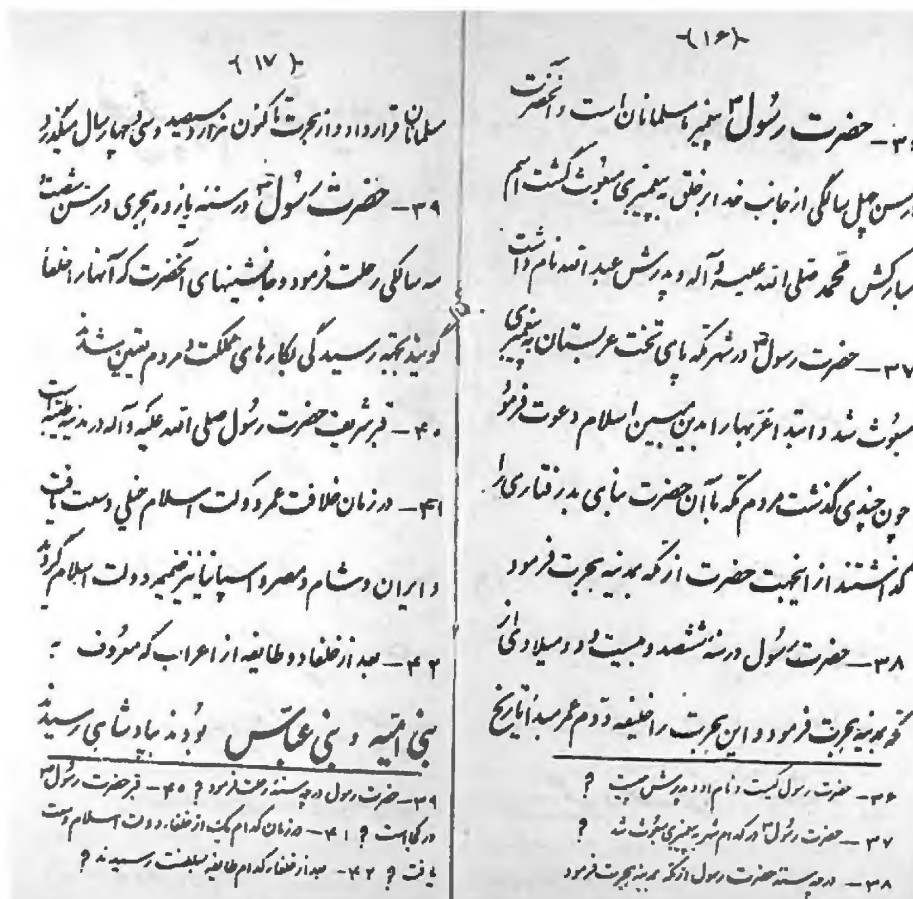 (۱۶)
۳۶— حضرت رسول ص پیغمبر ما مسلمانان است و آنحضرت
در سن چهل سالگی از جانب خدا بر خلق به پیغمبری مبعوث گشت اسم
مبارکش محمد صلی الله علیه و آله و پدرش عبد الله نام داشت
۳۷— حضرت رسول ص در شهر مکه پای تخت عربستان به پیغمبری
مبعوث شد و ابتدا عربها را بدین مبین اسلام دعوت فرمود
چون چندی گذشت مردم مکه با آن حضرت بنای بد رفتاری را
گذاشتند از اینجهت حضرت از مکه بمدینه هجرت فرمود
۳۸— حضرت رسول در سنه ششصد و بیست و دو میلادی از
مکه بمدینه هجرت فرمود و این هجرت را خلیفه دوم عمر مبدأ تاریخ
۳۶— حضرت رسول کیست و نام او و پدرش چیست ?
۳۷— حضرت رسول ص در کدام شهر به پیغمبری مبعوث شد ?
۳۸— در چه سنه حضرت رسول از مکه بمدینه هجرت فرمود
(۱۷)
مسلمانان قرار داد و از هجرت تا کنون هزار و سیصد و سی و چهار سال میگذرد
۳۹— حضرت رسول ص در سنه یازده هجری در سن شصت
سه سالگی رحلت فرمود و جانشینهای آنحضرت که آنها را خلفا
گویند بجهته رسیدگی بکارهای مملکت و مردم تعیین شدند
۴۰— قبر شریف حضرت رسول صلی الله علیه و آله در مدینه طیبه است
۴۱— در زمان خلافت عمر دولت اسلام خیلی وسعت یافت
و ایران و شام و مصر و اسپانیا نیز ضمیمه دولت اسلام گردید
۴۲— بعد از خلفاء دو طایفه از اعراب که معروف به
بنی امیه و بنی عباس بودند بپادشاهی رسیدند
۳۹— حضرت رسول در چه سنه رحلت فرمود ? ۴۰— قبر حضرت رسول ص
در کجاست ? ۴۱— در زمان کدام یک از خلفاء دولت اسلام وسعت
یافت ? ۴۲— بعد از خلفاء کدام طایفه بسلطنت رسیدند ?